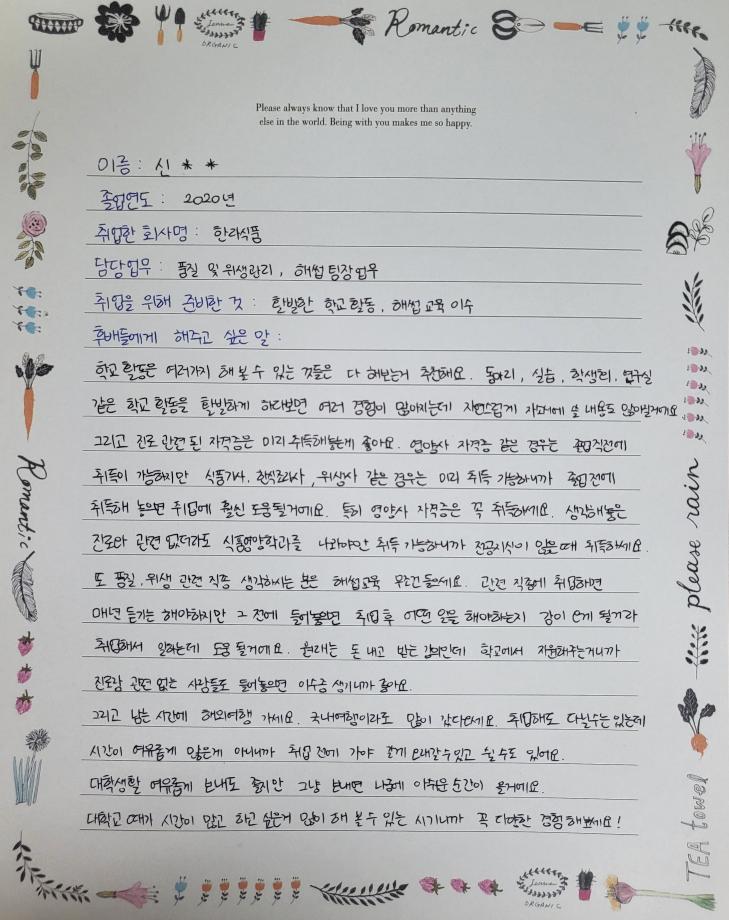 Romantic
Jenna
ORGANIC
Please always know that I love you more than anything
else in the world. Being with you makes me so happy.
이름 : 신 * *
졸업연도 : 2020년
취업한 회사명 : 한라식품
담당업무 : 품질 및 위생관리, 해썹 팀장 업무
취업을 위해 준비한 것 : 활발한 학교 활동, 해썹 교육 이수
후배들에게 해주고 싶은 말 :
학교 활동은 여러가지 해 볼 수 있는 것들은 다 해보는거 추천해요. 동아리, 실습, 학생회, 연구실
같은 학교 활동을 활발하게 하다보면 여러 경험이 많아지는데 자연스럽게 자소서에 쓸 내용도 많아질거에요
그리고 진로 관련 된 자격증은 미리 취득해놓는게 좋아요. 영양사 자격증 같은 경우는 졸업직전에
취득이 가능하지만 식품기사, 한식조리사, 위생사 같은 경우는 미리 취득 가능하니까 졸업 전에
취득해 놓으면 취업에 훨씬 도움될거에요. 특히 영양사 자격증은 꼭 취득하세요. 생각해놓은
진로와 관련 없더라도 식품영양학과를 나와야만 취득 가능하니까 전공지식이 있을때 취득하세요.
또 품질, 위생 관련 직종 생각하시는 분은 해썹교육 무조건 들으세요. 관련 직종에 취업하면
매년 듣기는 해야하지만 그 전에 들어놓으면 취업 후 어떤 일을 해야하는지 감이 오게 될거라
취업해서 일하는데 도움 될거에요. 원래는 돈 내고 받는 강의인데 학교에서 지원해주는거니까
진로랑 관련 없는 사람들도 들어놓으면 이수증 생기니까 좋아요.
그리고 남는 시간에 해외여행 가세요. 국내여행이라도 많이 갔다오세요. 취업해도 다닐수는 있는데
시간이 여유롭게 많은게 아니니까 취업 전에 가야 길게 오래갈수있고 쉴 수도 있어요.
대학생활 여유롭게 보내도 좋지만 그냥 보내면 나중에 아쉬운 순간이 올거에요.
대학교 때가 시간이 많고 하고 싶은거 많이 해 볼 수 있는 시기니까 꼭 다양한 경험 해보세요!
Romantic
please rain
TEA towel
Jenna
ORGANIC